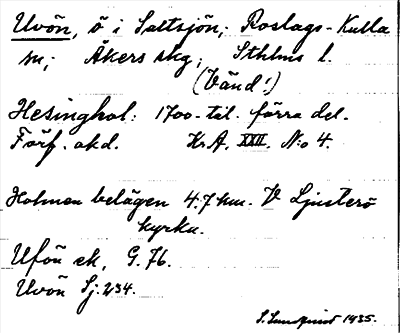 Uvön, ö i Saltsjön; Roslags-Kulla
sn; Åkers skg; Sthlms l.
(Vänd!)
Hesinghol: 1700-tal. förra del.
Förf. okd. Kr. A. XXII. N:o 4.
Holmen belägen 4.7 km. V Ljusterö
kyrka.
Ufön ek, G. 76.
Uvön Sj: 234.
S. Lundquist 1935.